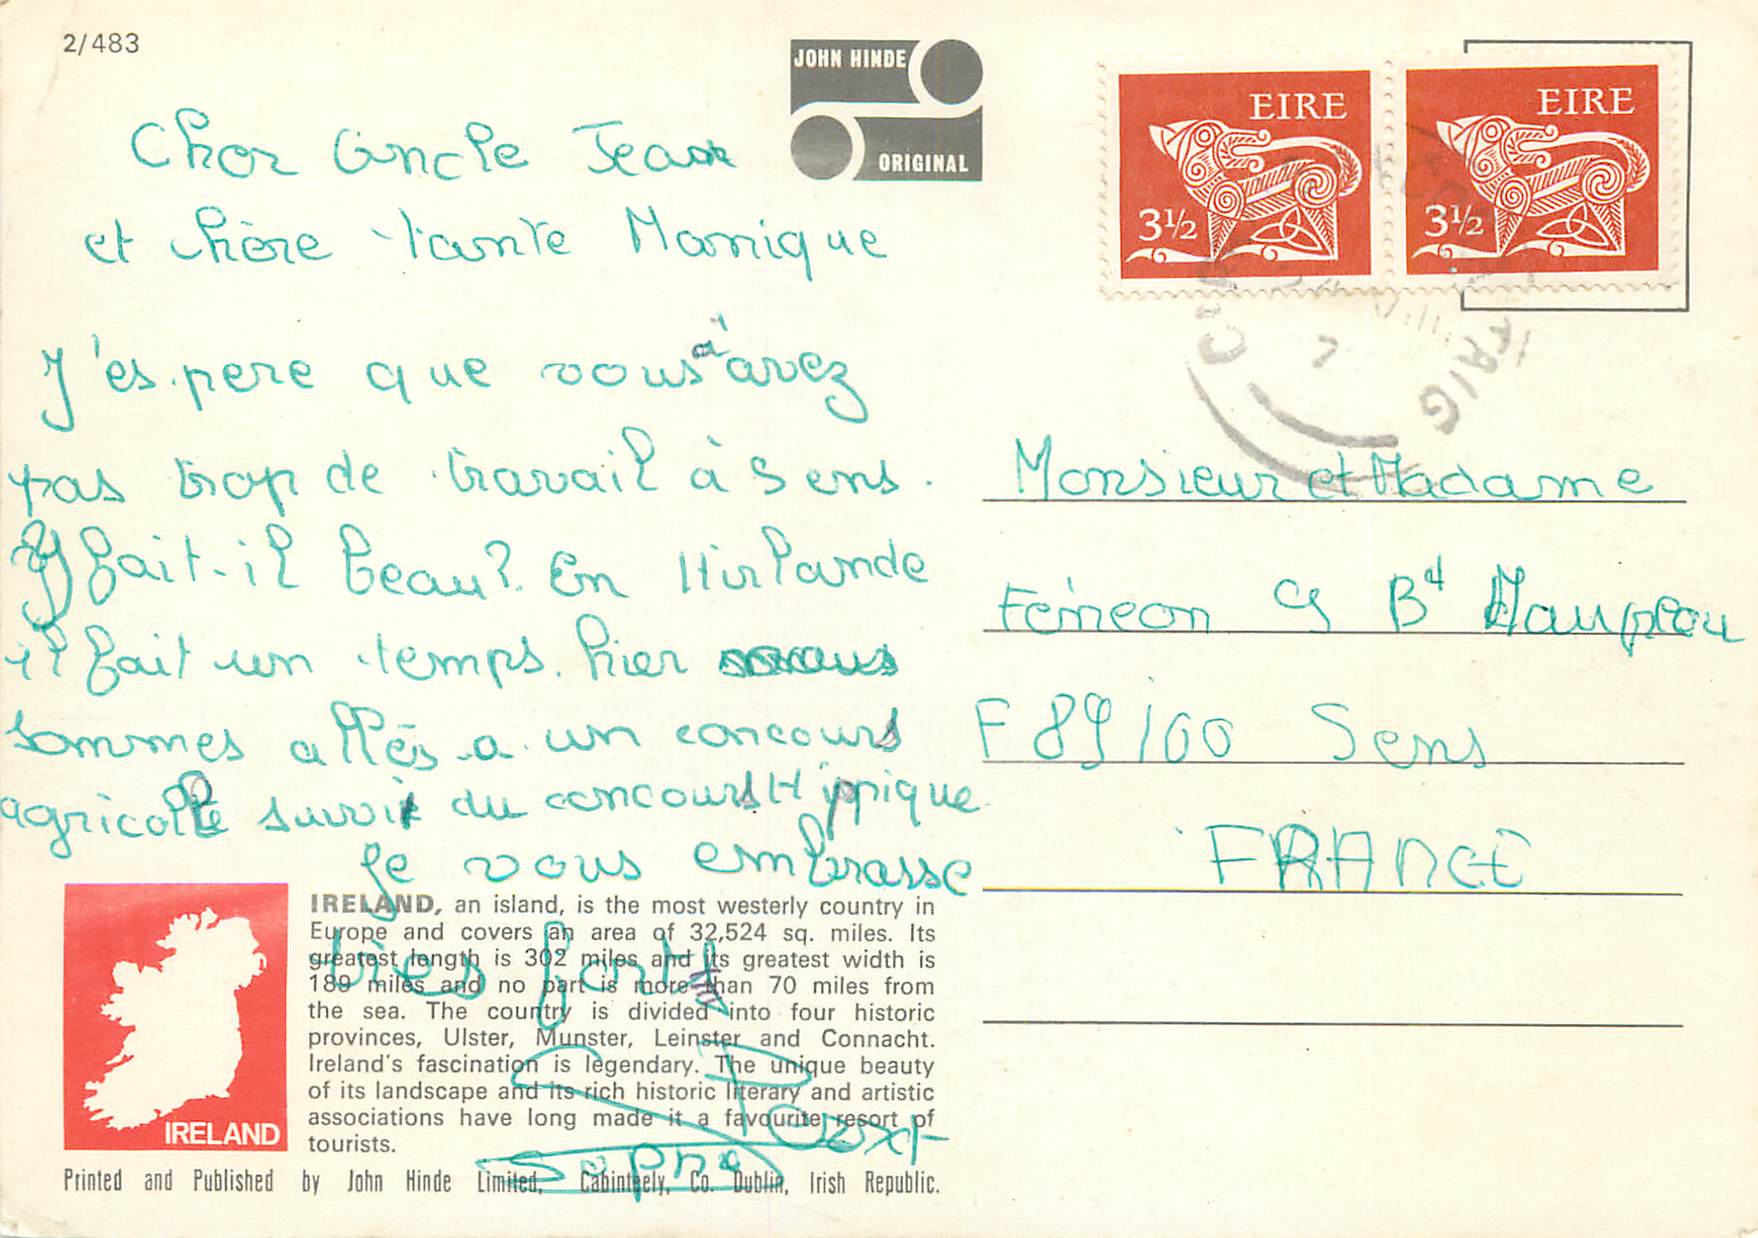 2/483
JOHN HINDE
ORIGINAL
EIRE
3½
EIRE
3½
Cher Oncle Jean
et chère tante Monique
J'espere que vous avez
pas trop de travail à Sens.
y fait-il beau? En Hirlande
il fait un temps. hier nous
sommes allés a un concours
agricolle suivi du concours Hippique
Je vous embrasse
très fort
Sophie
Monsieur et Madame
Féneon 9 Bd Maupeou
F 89100 Sens
FRANCE
IRELAND
IRELAND, an island, is the most westerly country in
Europe and covers an area of 32,524 sq. miles. Its
greatest length is 302 miles and its greatest width is
189 miles and no part is more than 70 miles from
the sea. The country is divided into four historic
provinces, Ulster, Munster, Leinster and Connacht.
Ireland's fascination is legendary. The unique beauty
of its landscape and its rich historic literary and artistic
associations have long made it a favourite resort of
tourists.
Printed and Published by John Hinde Limited, Cabinteely, Co. Dublin, Irish Republic.